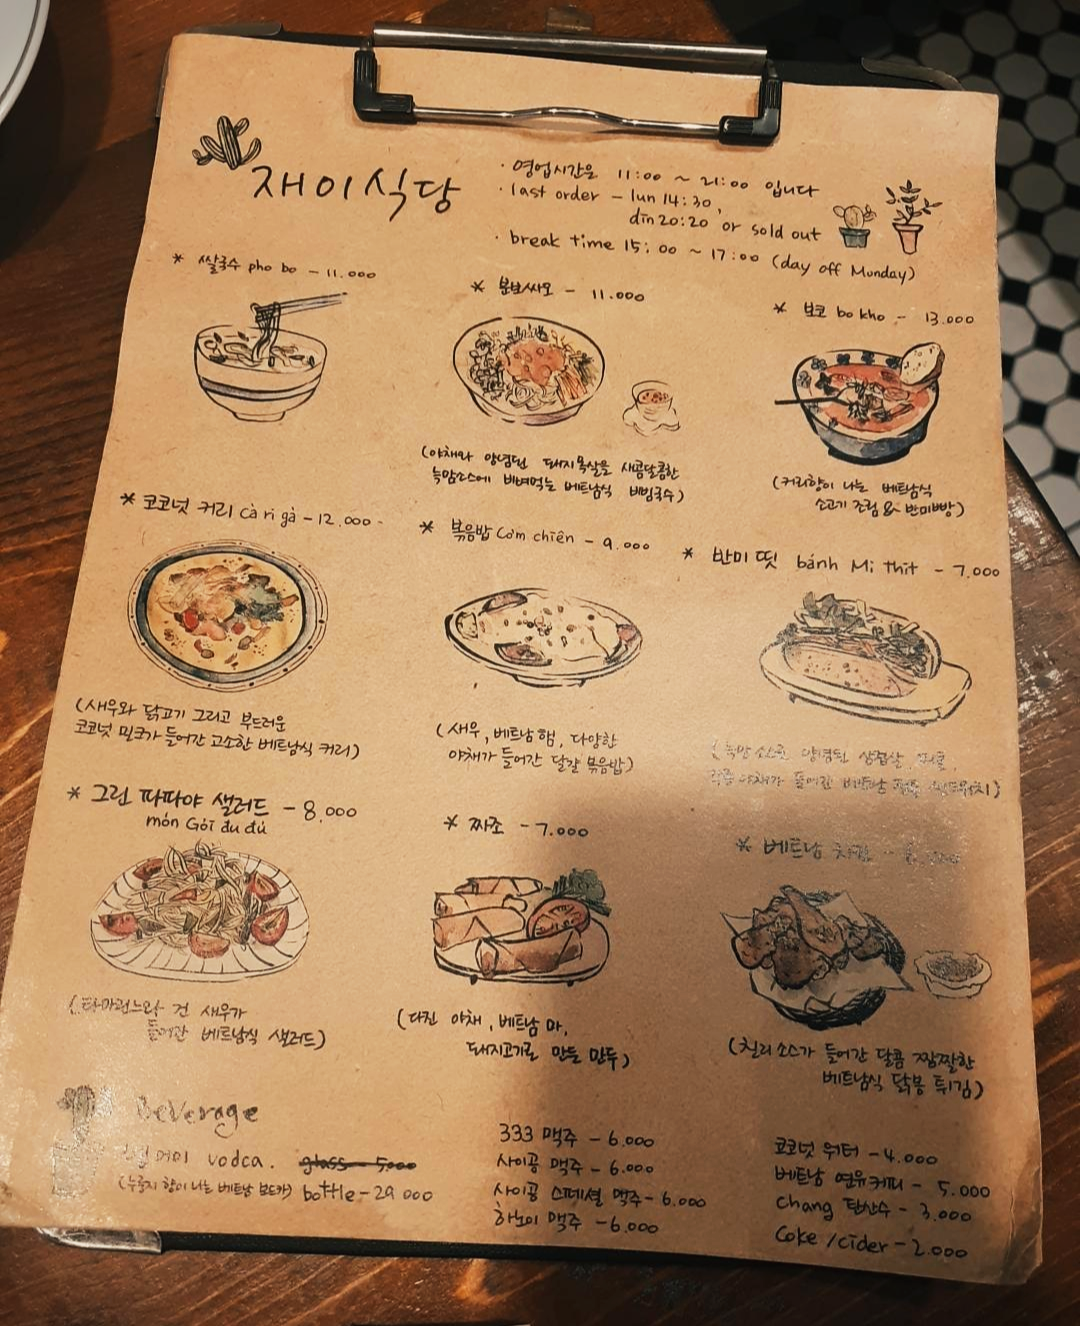 재이식당
· 영업시간은 11:00 ~ 21:00 입니다
· last order - lun 14:30,
din 20:20 or sold out
· break time 15:00 ~ 17:00 (day off Munday)
* 쌀국수 pho bo - 11.000
* 분보싸오 - 11.000
(야채와 양념된 돼지목살을 새콤달콤한
늑맘소스에 비벼먹는 베트남식 비빔국수)
* 보코 bo kho - 13.000
(커리향이 나는 베트남식
소고기 조림 & 반미빵)
* 코코넛 커리 cà ri gà - 12.000
(새우와 닭고기 그리고 부드러운
코코넛 밀크가 들어간 고소한 베트남식 커리)
* 볶음밥 Cơm chiên - 9.000
(새우, 베트남 햄, 다양한
야채가 들어간 달걀 볶음밥)
* 반미 띳 bánh Mi thit - 7.000
(늑맘 소스로 양념된 삼겹살,
야채가 들어간 베트남 샌드위치)
* 그린 파파야 샐러드 - 8.000
món Gỏi đu đủ
(타마린느와 건 새우가
들어간 베트남식 샐러드)
* 짜조 - 7.000
(다진 야채, 베트남 마,
돼지고기로 만든 만두)
* 베트남 치킨
(칠리소스가 들어간 달콤 짬짤한
베트남식 닭봉 튀김)
Beverage
vodca. glass - 5.000
(누룽지 향이 나는 베트남 보드카) bottle - 29.000
333 맥주 - 6.000
사이공 맥주 - 6.000
사이공 스페셜 맥주 - 6.000
하노이 맥주 - 6.000
코코넛 워터 - 4.000
베트남 연유커피 - 5.000
Chang 탄산수 - 3.000
Coke / cider - 2.000